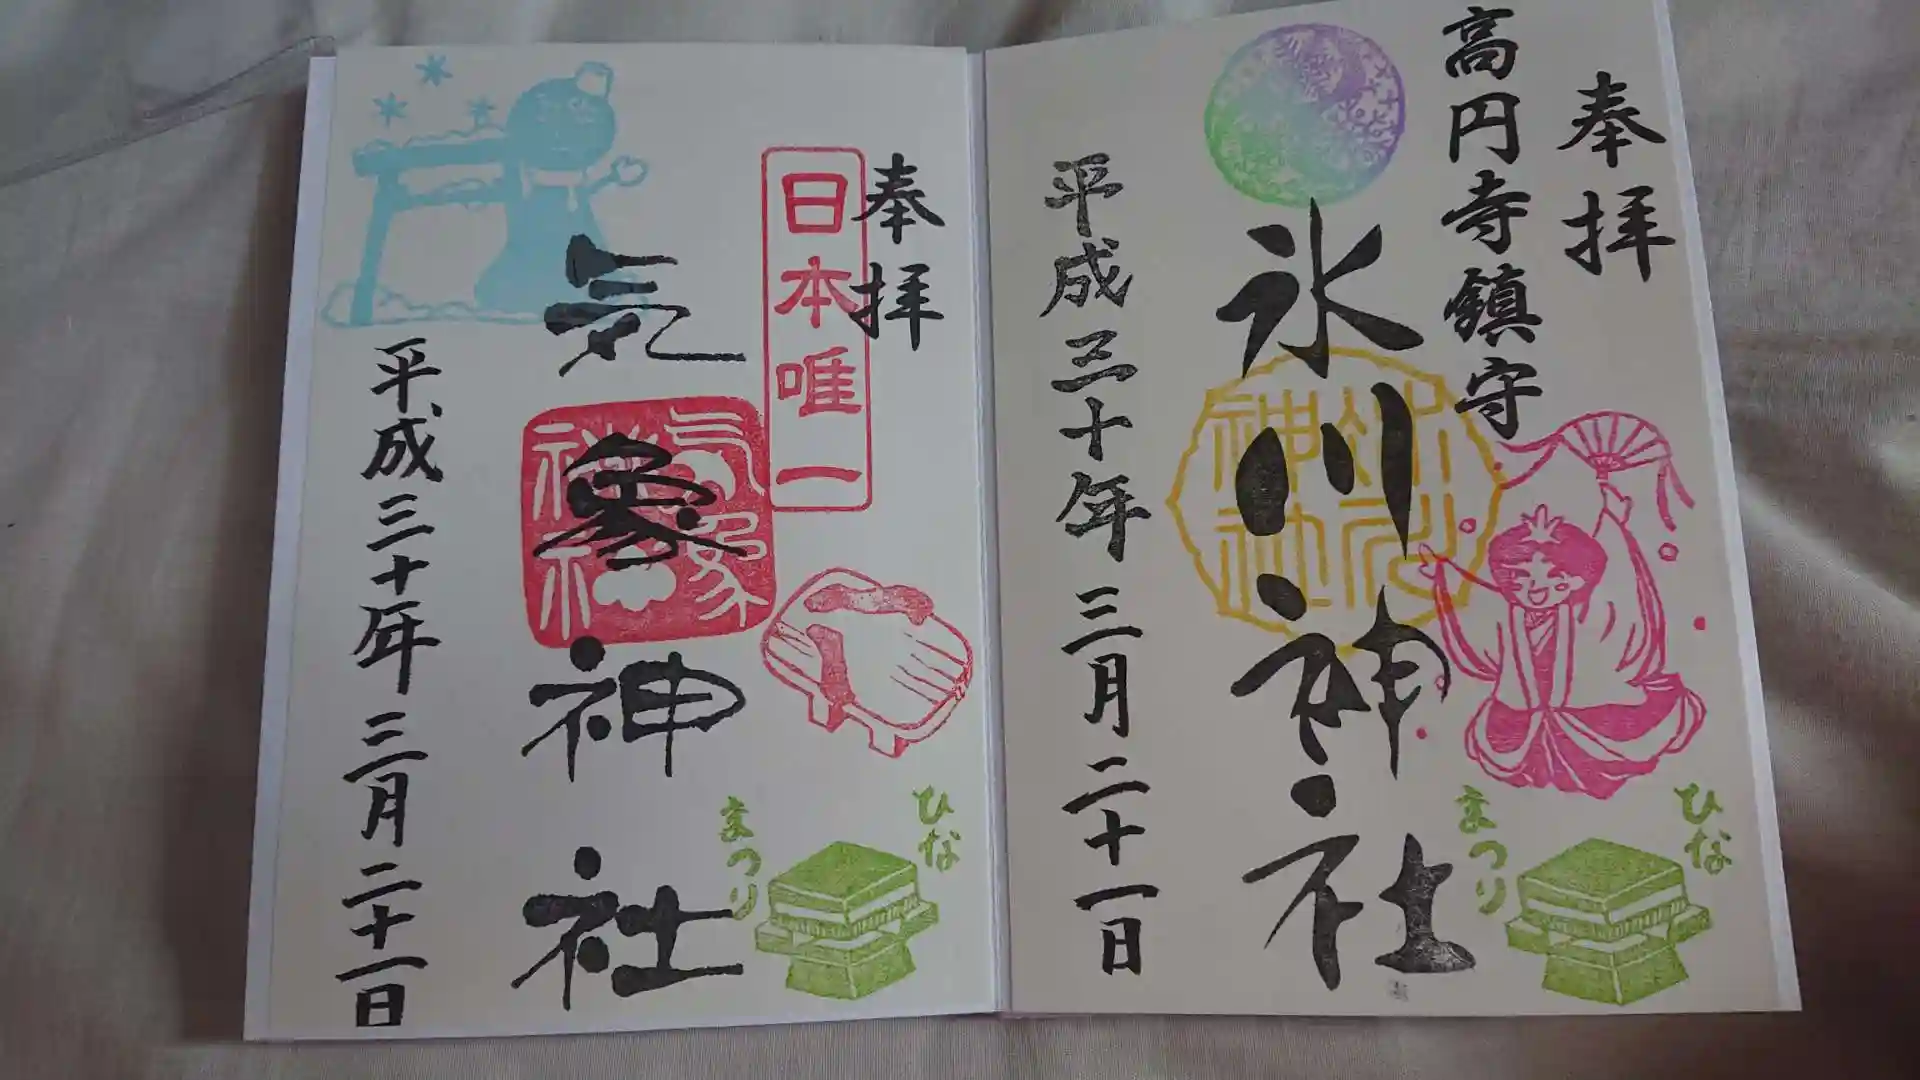 奉拝
高円寺鎮守
氷川神社
氷川神社
平成三十年三月二十一日
ひな
まつり
奉拝
日本唯一
気象神社
気象神社
平成三十年三月二十一日
ひな
まつり